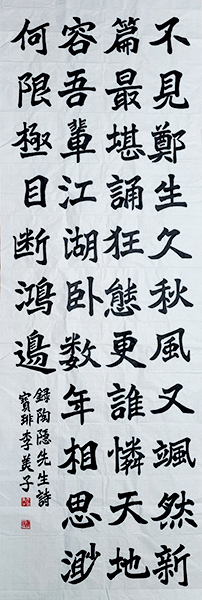 不見鄭生久秋風又颯然新
篇最堪誦狂態更誰憐天地
容吾輩江湖卧数年相思渺
何限極目断鴻邊
錄陶隱先生詩
賓琲李美子